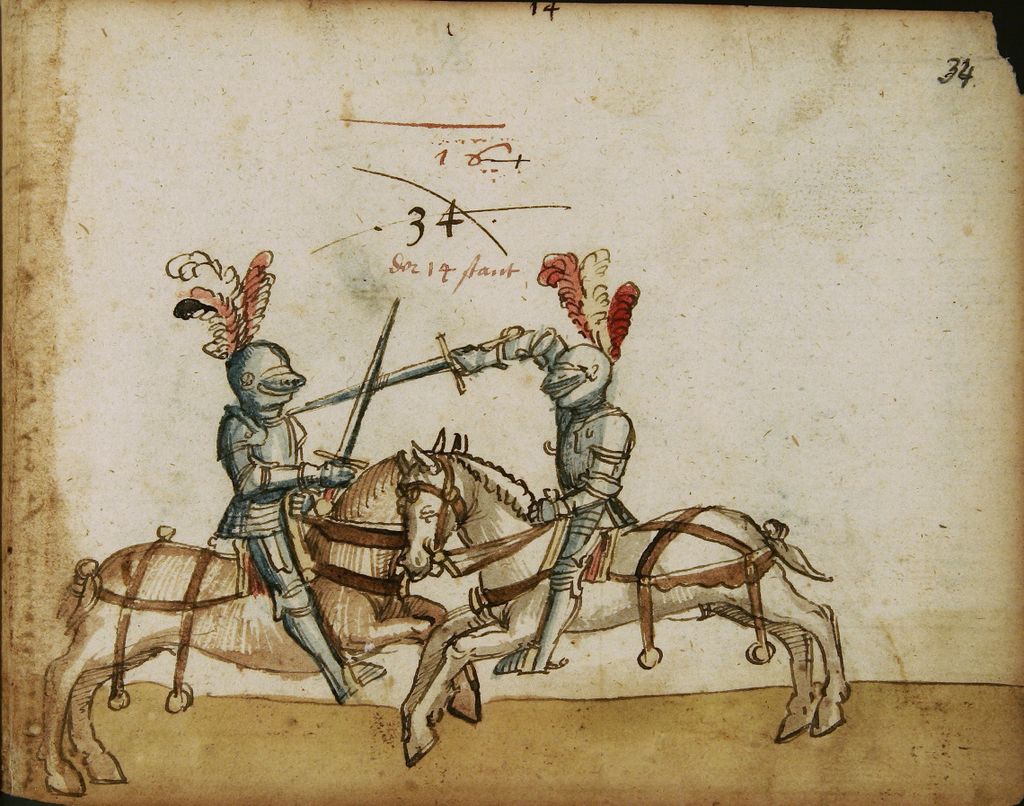 14
34
16
34
der 14 stant